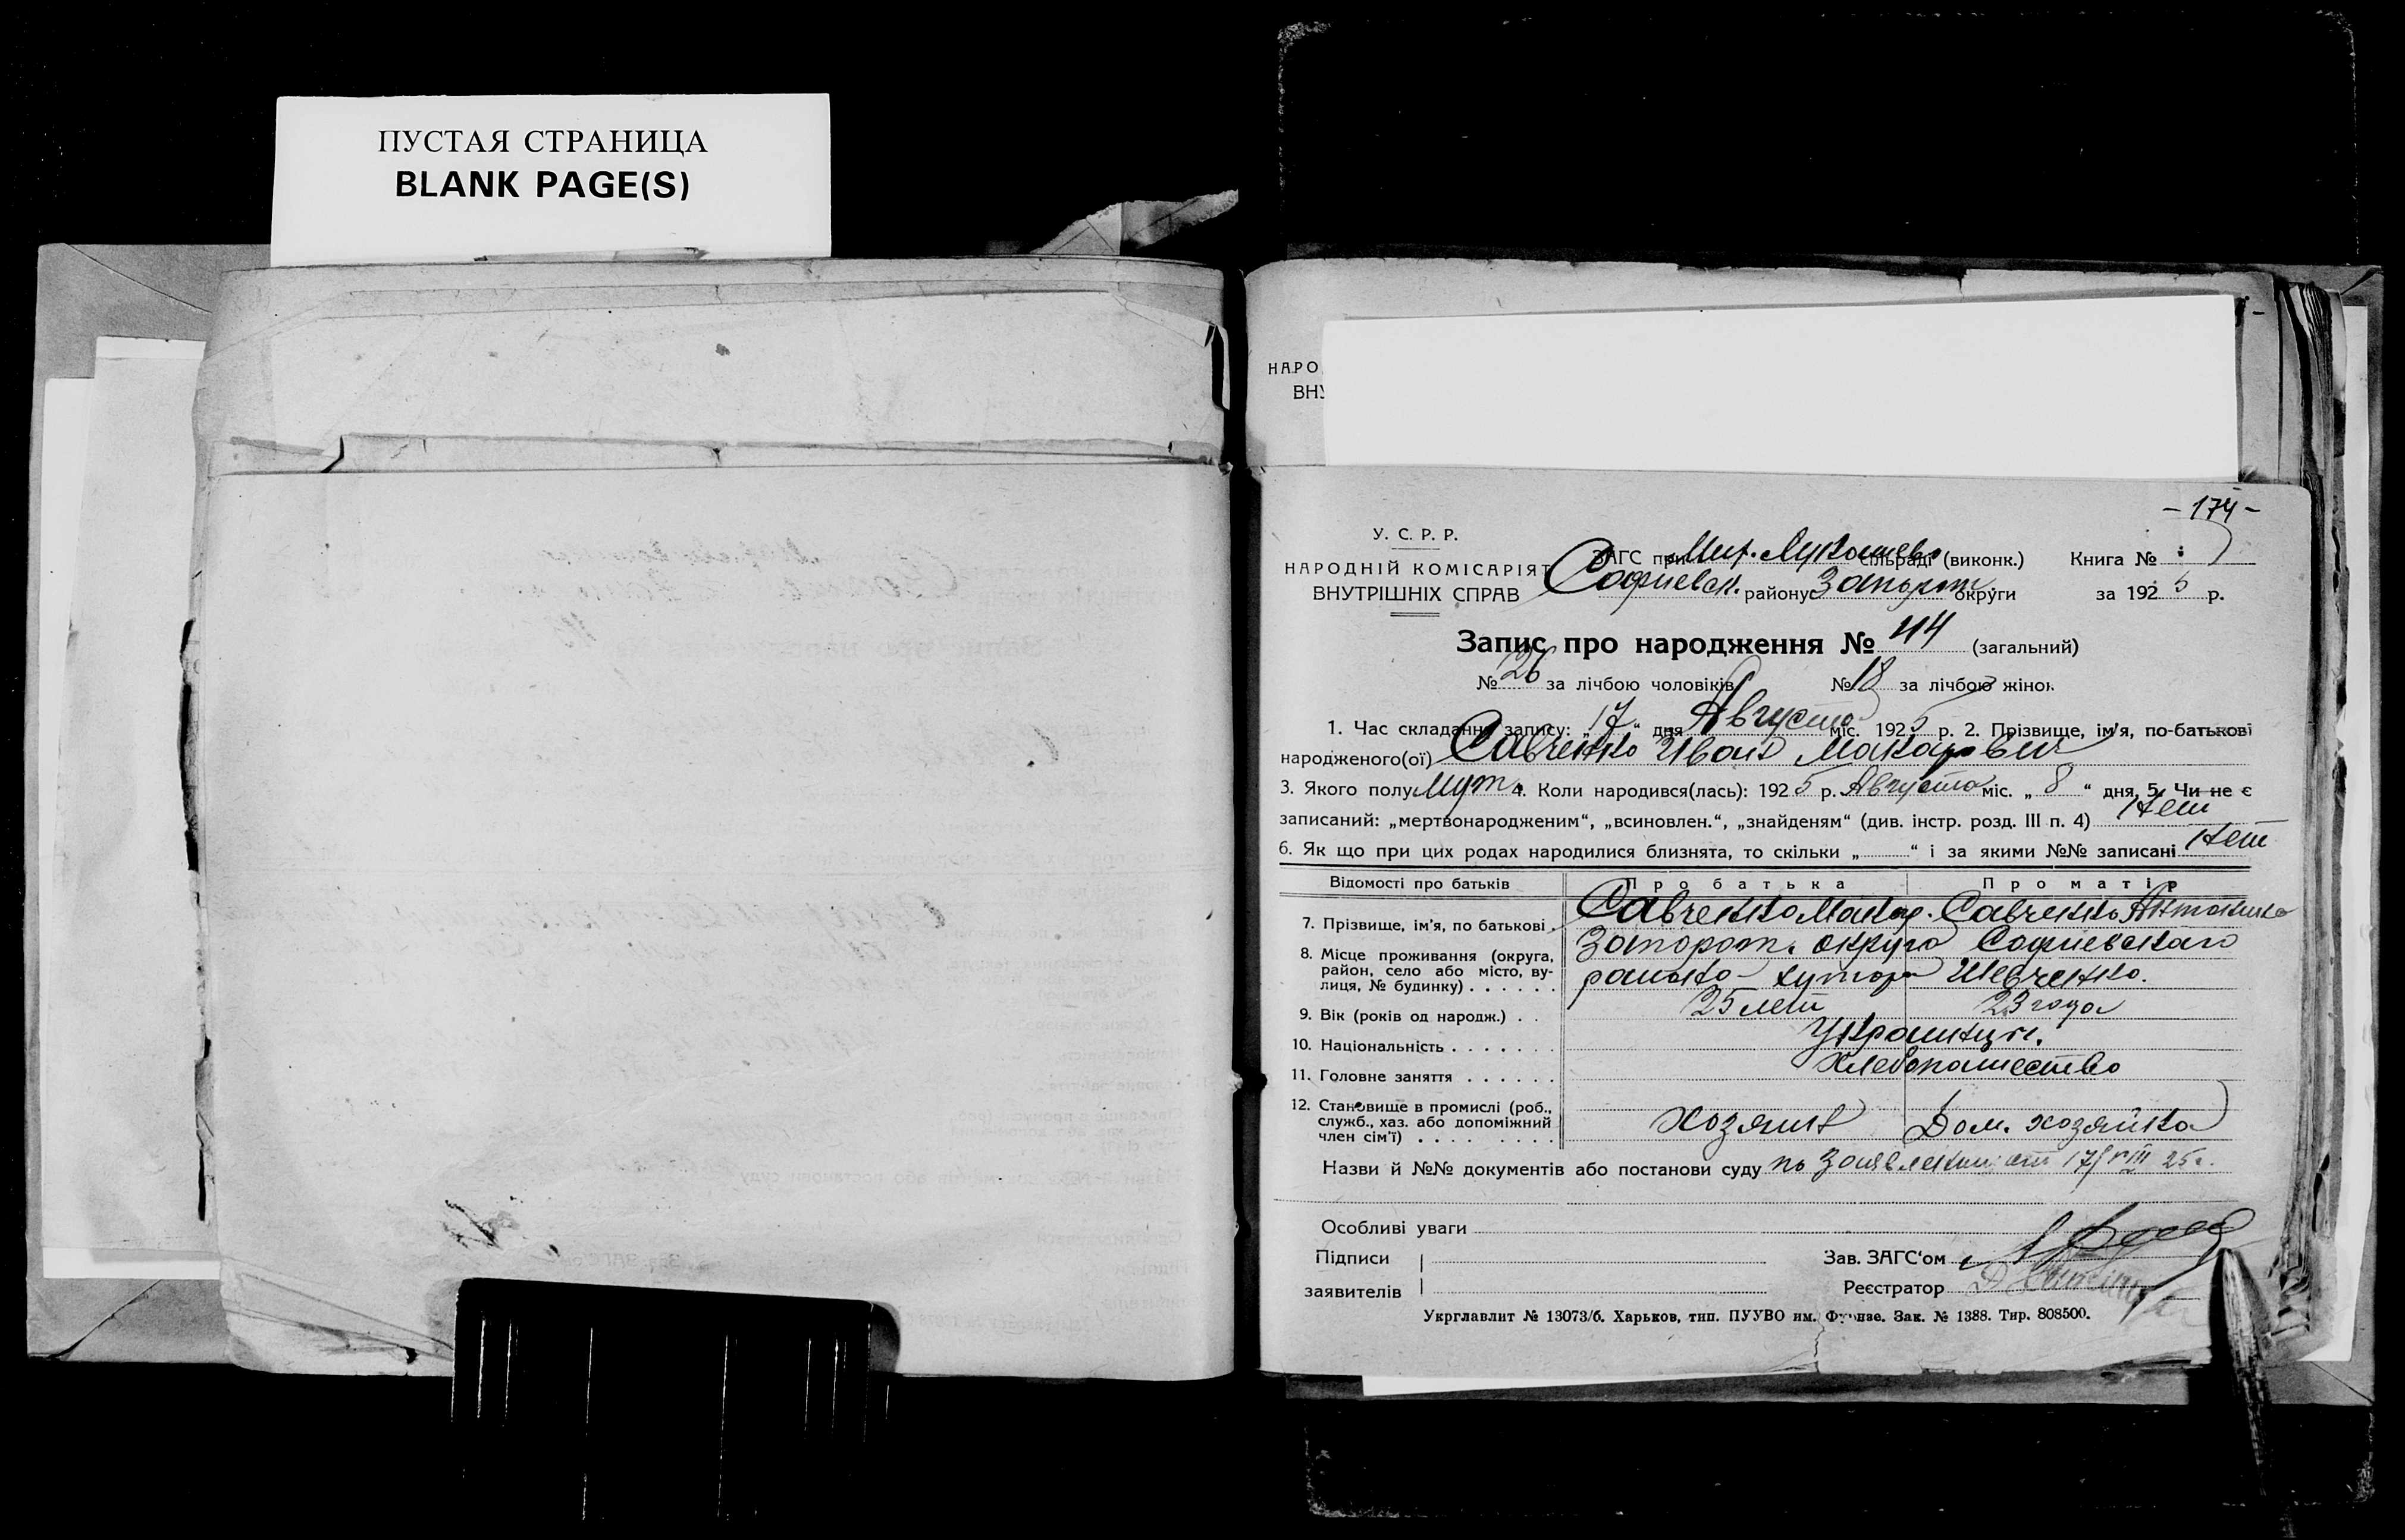 ПУСТАЯ СТРАНИЦА
BLANK PAGE(S)
НАРО
ВНУ
- 174 -
У. С. Р. Р.
НАРОДНІЙ КОМІСАРІЯТ
ВНУТРІШНІХ СПРАВ
ЗАГС при Мих. Лукашев. сільраді (виконк.) Книга №
Софиевск. району Запорож. округи за 1925 р.
Запис про народження № 44 (загальний)
№ 26 за лічбою чоловіків № 18 за лічбою жінок
1. Час складання запису: „17“ дня Августа міс. 1925 р. 2. Прізвище, ім'я, по-батькові
народженого(ої) Савченко Иван Макарович
3. Якого полу Муж. 4. Коли народився(лась): 1925 р. Августа міс. „8“ дня, 5. Чи не є
записаний: „мертвонародженим“, „всиновлен.“, „знайденям“ (див. інстр. розд. III п. 4) Нет
6. Як що при цих родах народилися близнята, то скільки „ “ і за якими №№ записані Нет
Відомості про батьків Про батька Про матір
7. Прізвище, ім'я, по батькові. Савченко Макар. Савченко
8. Місце проживання (округа, район, село або місто, вулиця, № будинку) . . . . . . Запорож. округа Софиевскаго
района - хутор Шевченко.
9. Вік (років од народж.) . . 25 лет 23 года
10. Національність . . . . . . . Украинцы.
11. Головне заняття . . . . . . Хлебопашество
12. Становище в промислі (роб., служб., хаз. або допоміжний член сім'ї) . . . . . . . . Хозяин Дом. хозяйка
Назви й №№ документів або постанови суду по заявлению от 17/VIII 25 г.
Особливі уваги
Підписи Зав. ЗАГС'ом
заявителів Реєстратор
Укрглавлит № 13073/б. Харьков, тип. ПУУВО им. Фрунзе. Зак. № 1388. Тир. 808500.